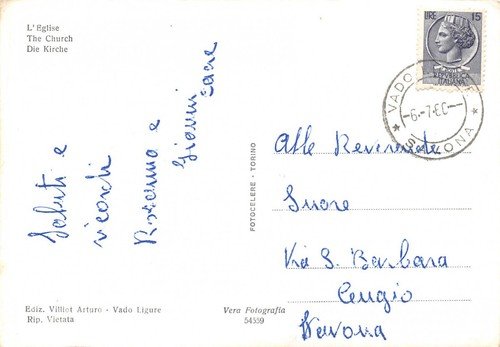 L'Eglise
The Church
Die Kirche
Saluti e
ricordi
Rosanna e
Gianni
FOTOCELERE - TORINO
Ediz. Villiot Arturo - Vado Ligure
Rip. Vietata
Vera Fotografia
54559
LIRE 15
REPVBBLICA
ITALIANA
VADO
-6-7.60-
Alle Reverende
Suore
Via S. Barbara
Cengio
Savona